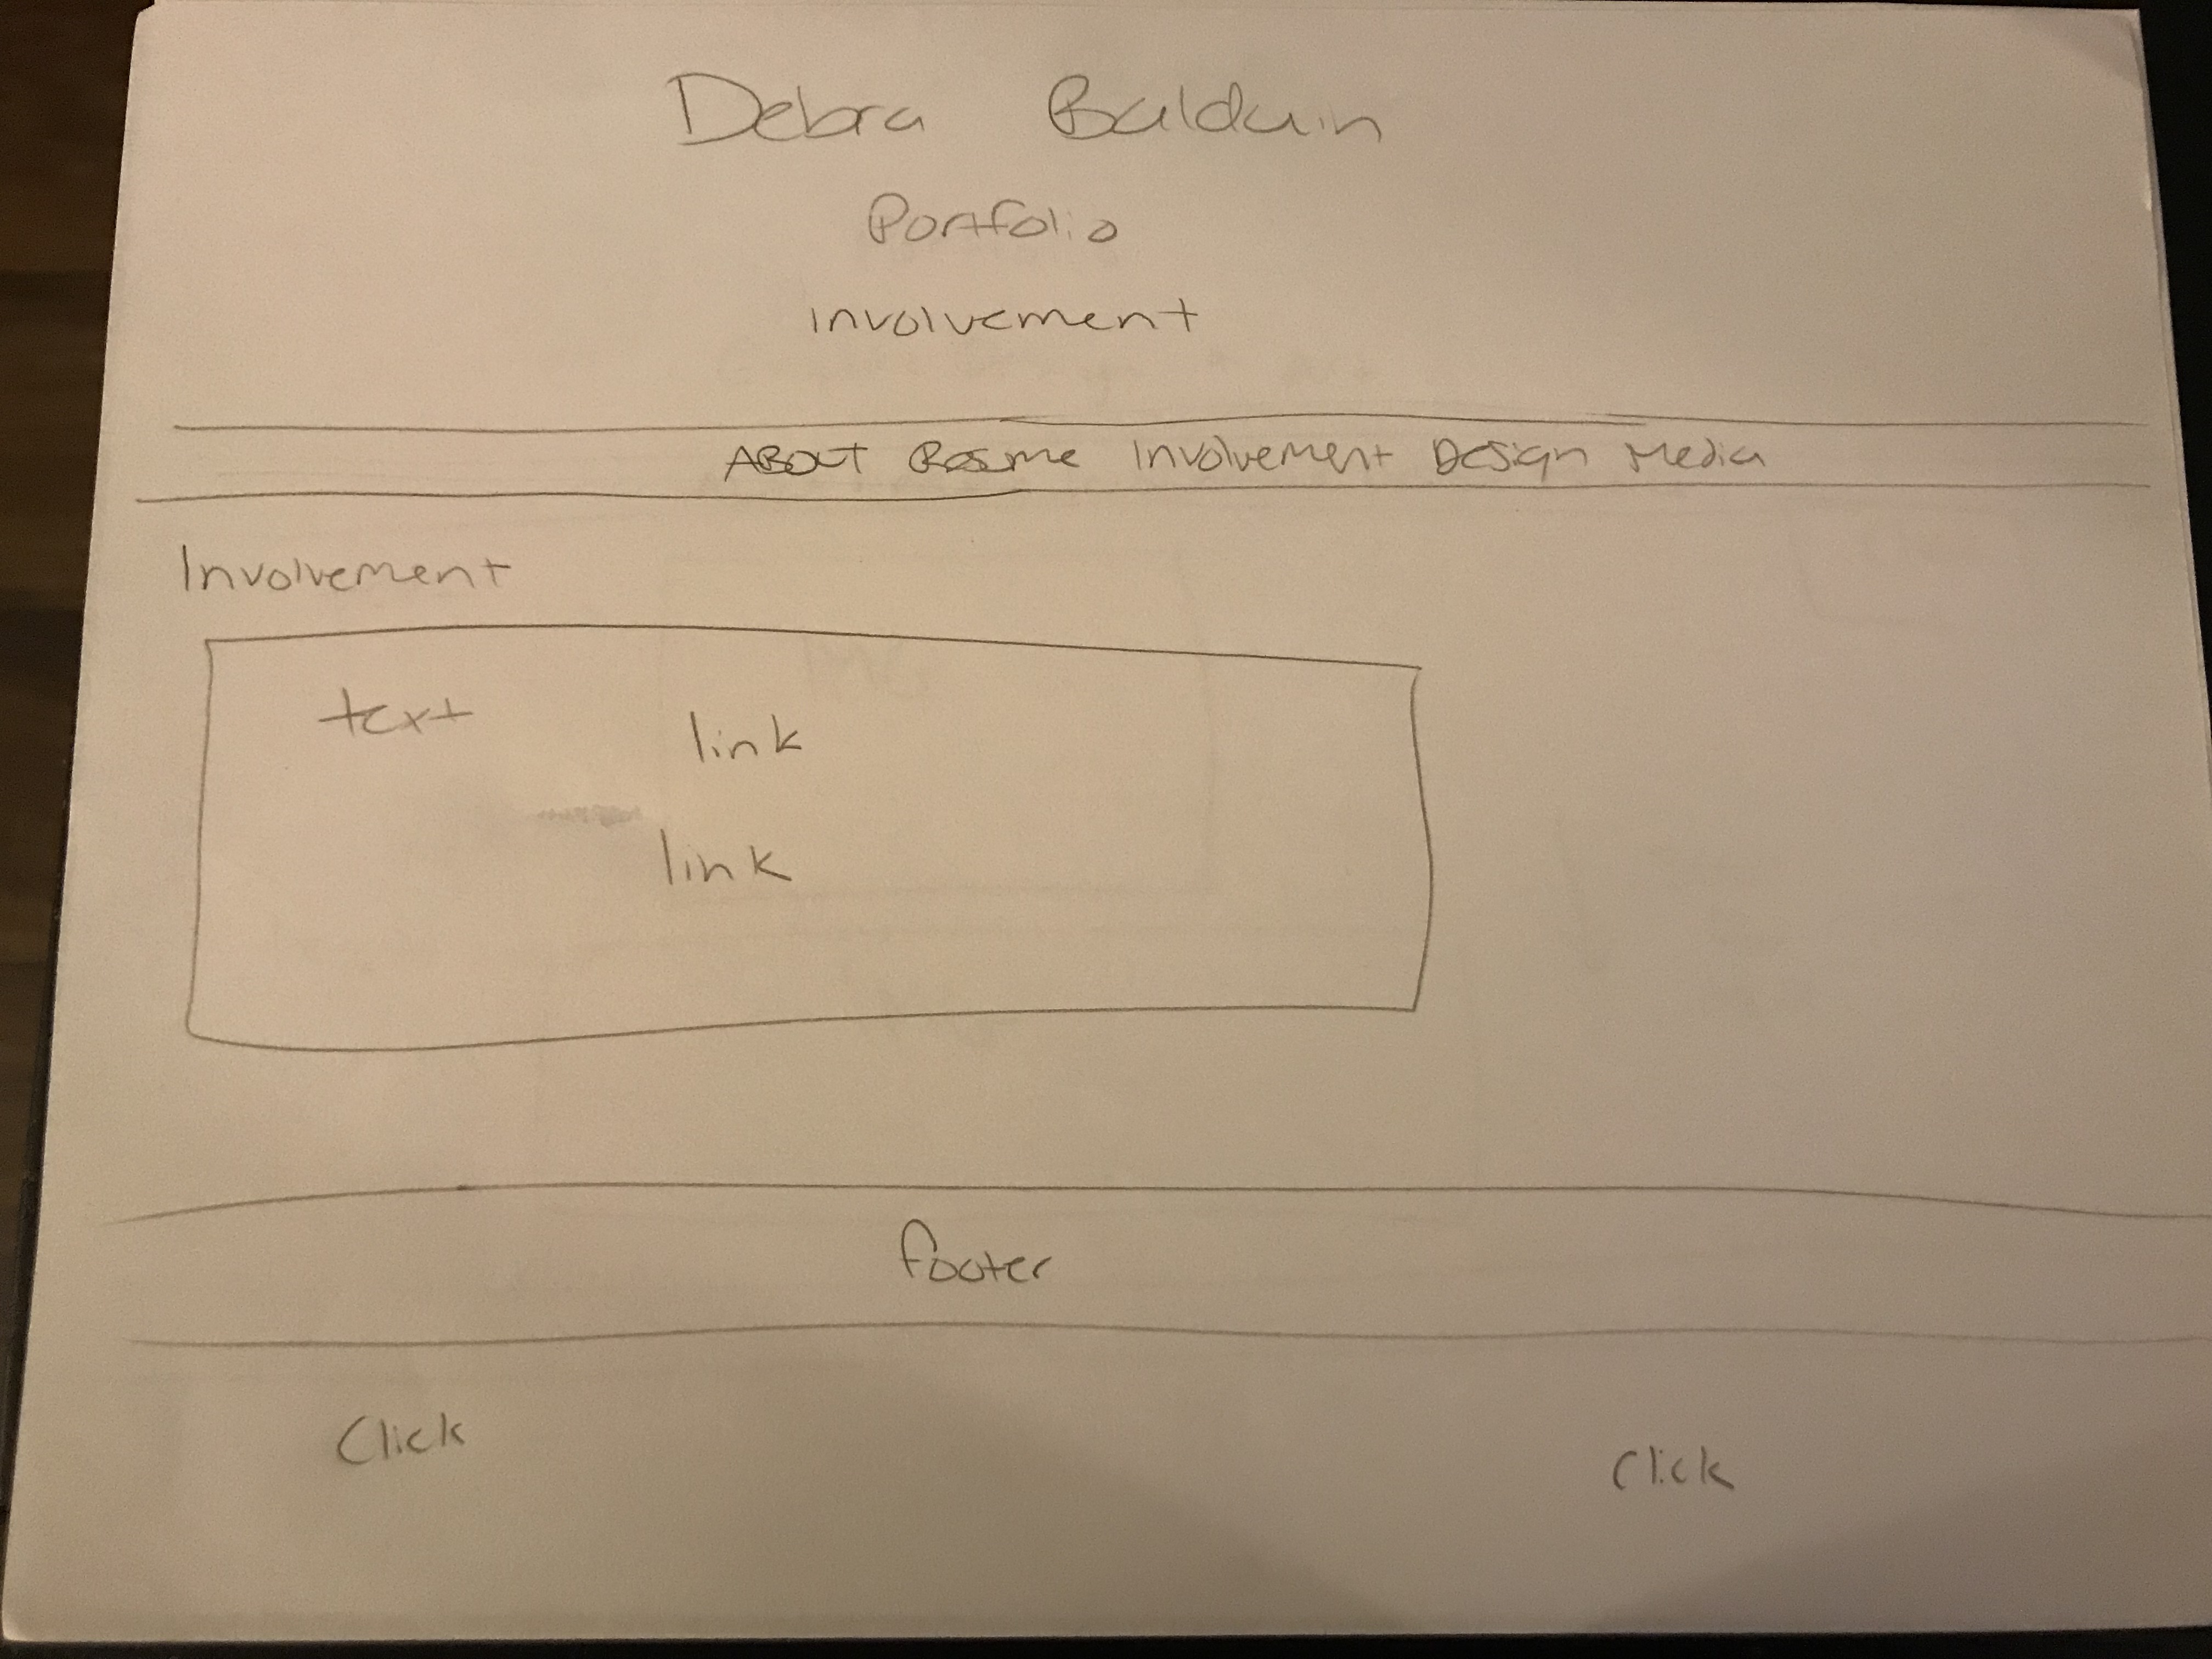 Debra Bauldwin
Portfolio
Involvement
ABOUT Resume Involvement Design Media
Involvement
text
link
link
footer
Click
Click